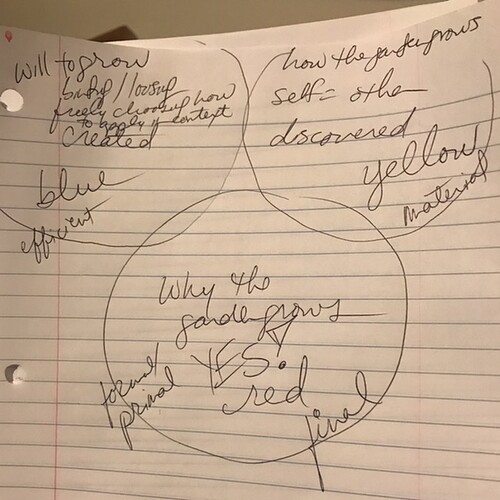 will to grow
binding / loosing
freely choosing how
to apply in context
created
blue
efficient
how the garden grows
self = other
discovered
yellow
material
why the
garden grows
YES!
red
formal
primal
final